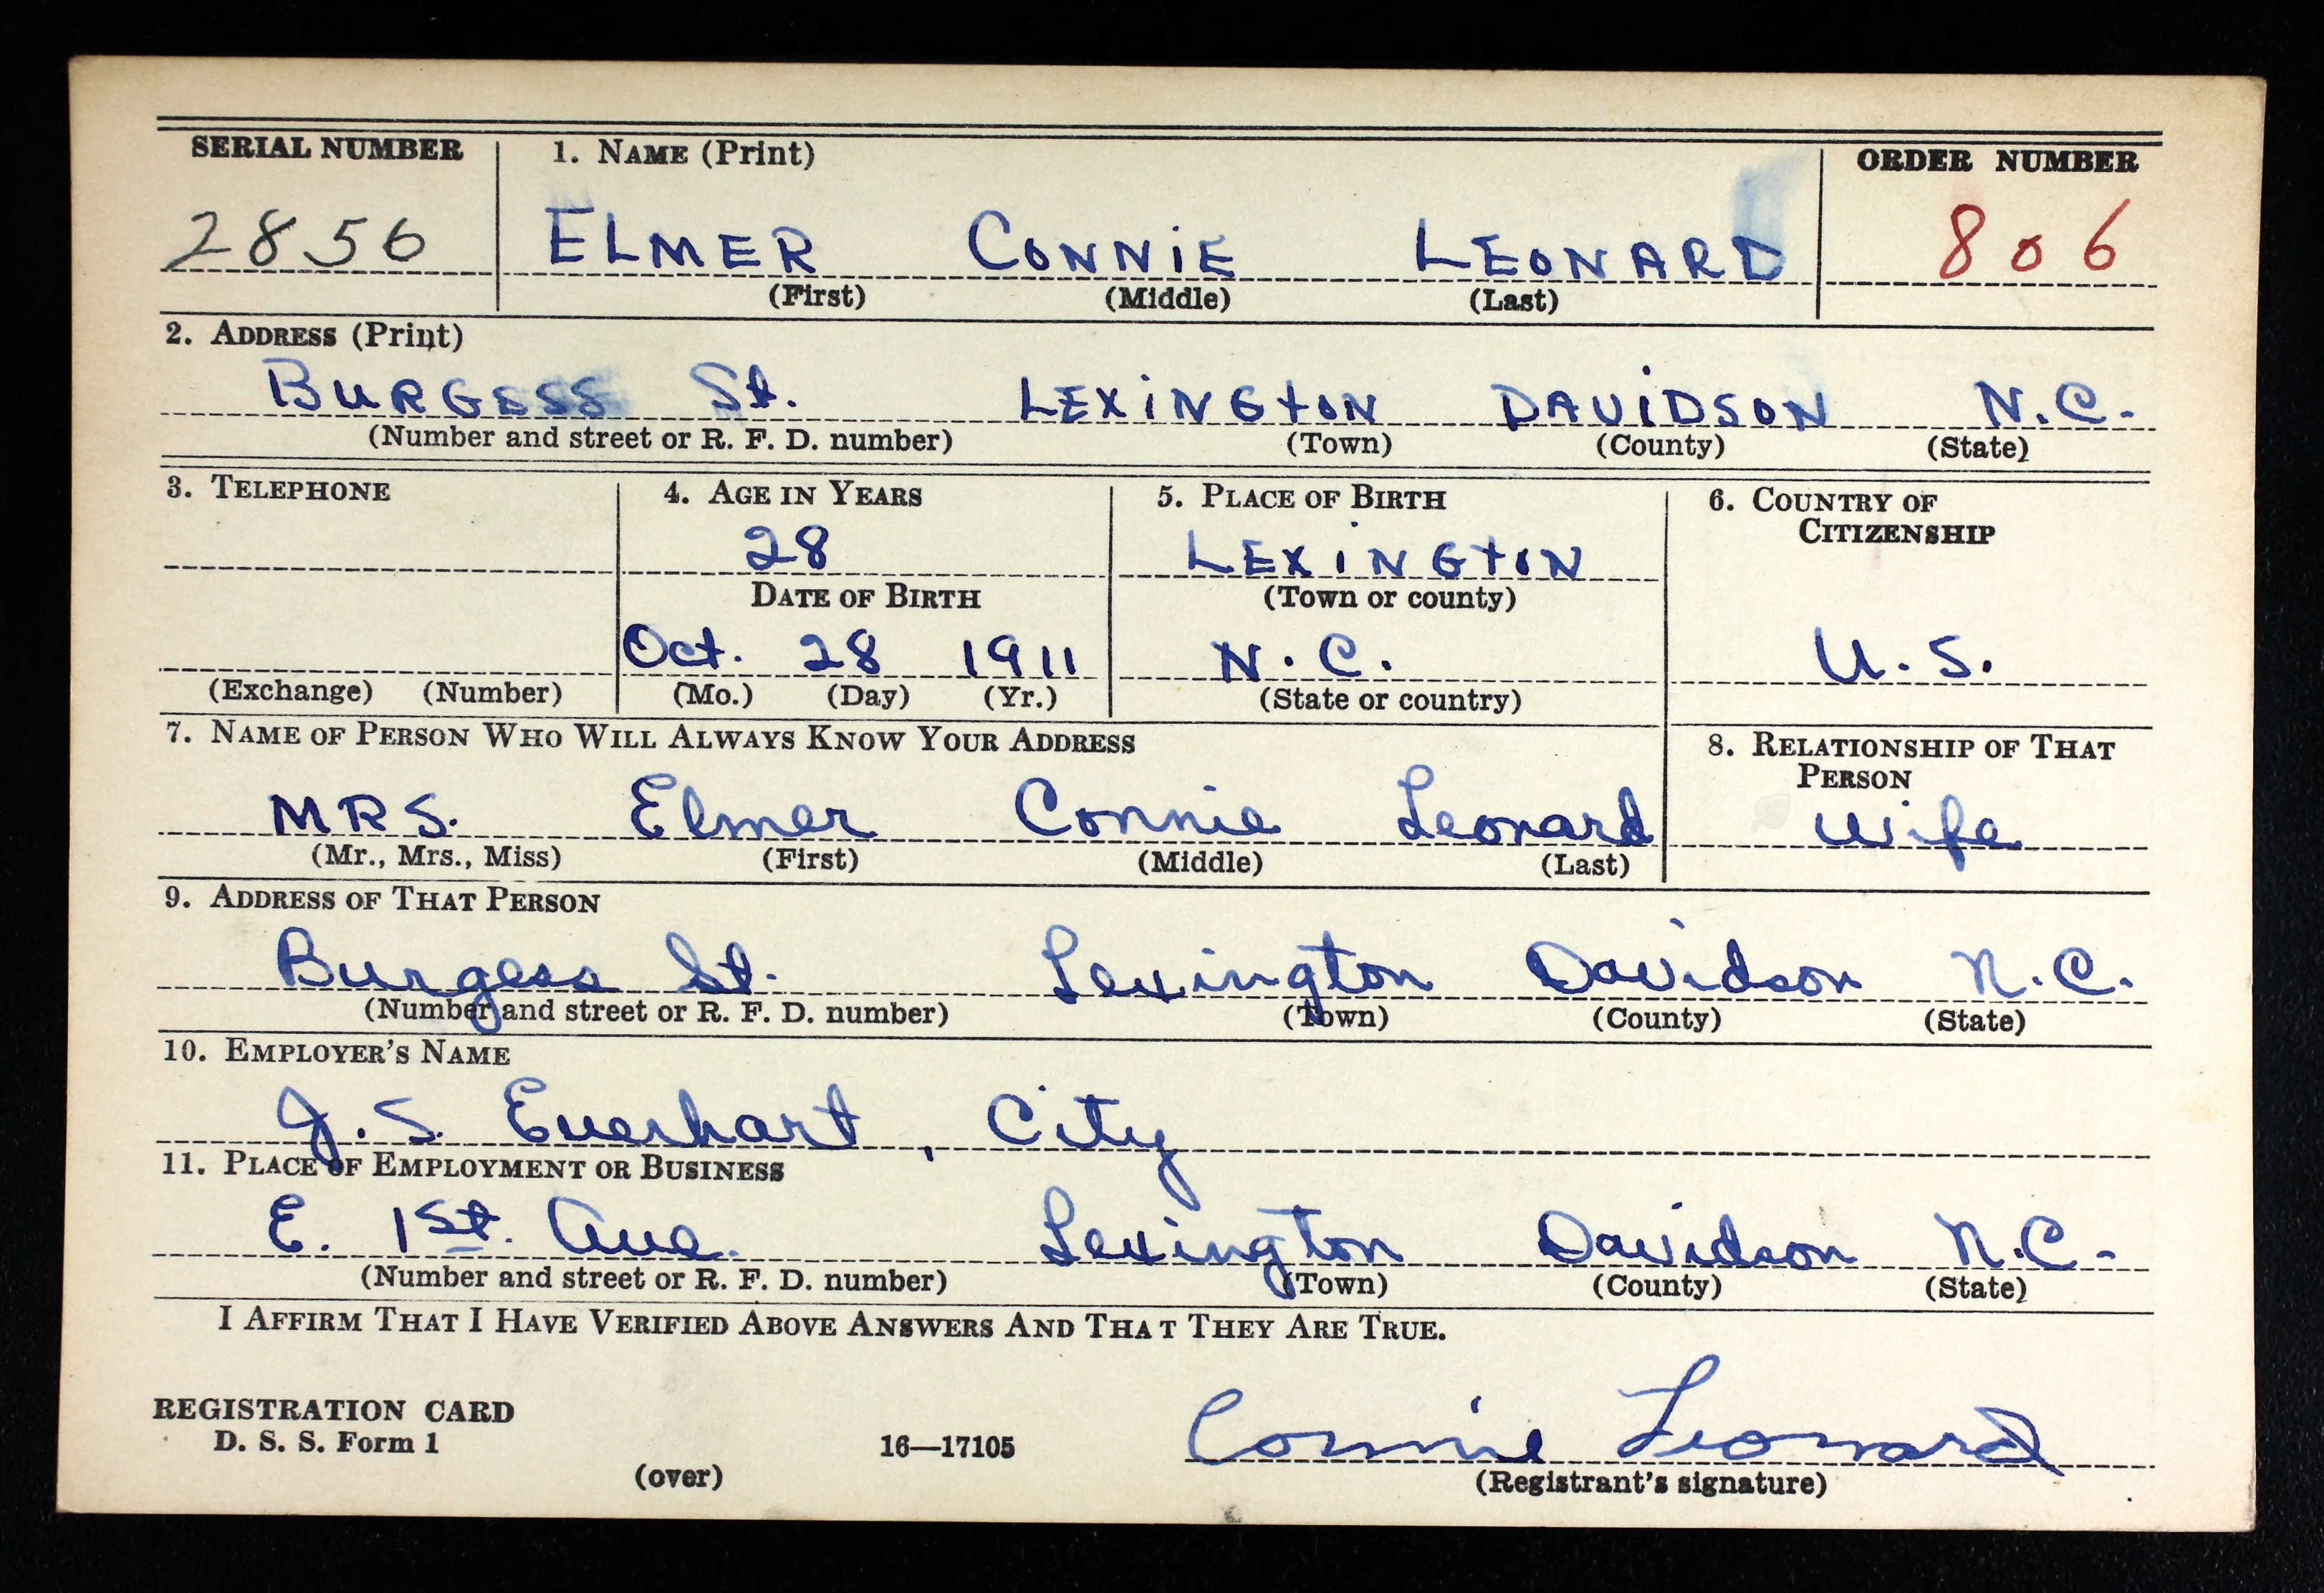 SERIAL NUMBER 1. NAME (Print) ORDER NUMBER
2856 ELMER CONNIE LEONARD 806
(First) (Middle) (Last)
2. ADDRESS (Print)
BURGESS St. LEXINGTON DAVIDSON N.C.
(Number and street or R. F. D. number) (Town) (County) (State)
3. TELEPHONE 4. AGE IN YEARS 5. PLACE OF BIRTH 6. COUNTRY OF
CITIZENSHIP
28 LEXINGTON
DATE OF BIRTH (Town or county)
Oct. 28 1911 N.C. U.S.
(Exchange) (Number) (Mo.) (Day) (Yr.) (State or country)
7. NAME OF PERSON WHO WILL ALWAYS KNOW YOUR ADDRESS 8. RELATIONSHIP OF THAT
PERSON
MRS. Elmer Connie Leonard Wife
(Mr., Mrs., Miss) (First) (Middle) (Last)
9. ADDRESS OF THAT PERSON
Burgess St. Lexington Davidson N.C.
(Number and street or R. F. D. number) (Town) (County) (State)
10. EMPLOYER'S NAME
J. S. Everhart, City
11. PLACE OF EMPLOYMENT OR BUSINESS
E. 1st. Ave. Lexington Davidson N.C.
(Number and street or R. F. D. number) (Town) (County) (State)
I AFFIRM THAT I HAVE VERIFIED ABOVE ANSWERS AND THAT THEY ARE TRUE.
REGISTRATION CARD
D. S. S. Form 1 16—17105 Connie Leonard
(over) (Registrant's signature)